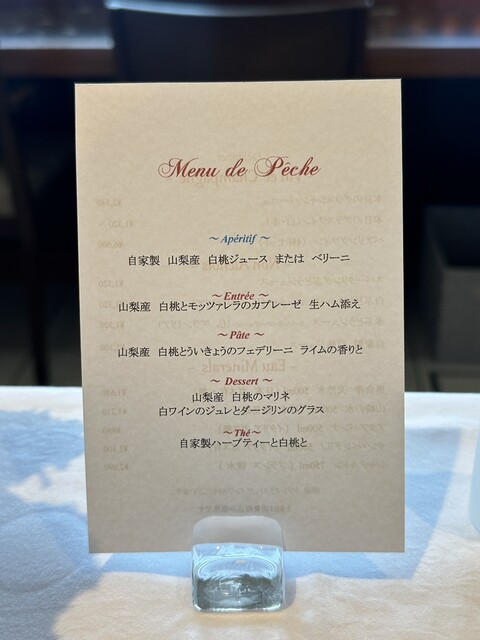 Menu de Pêche
～Apéritif～
自家製 山梨産 白桃ジュース または ベリーニ
～Entrée～
山梨産 白桃とモッツァレラのカプレーゼ 生ハム添え
～Pâte～
山梨産 白桃とういきょうのフェデリーニ ライムの香りと
～Dessert～
山梨産 白桃のマリネ
白ワインのジュレとダージリンのグラス
～Thé～
自家製ハーブティーと白桃と